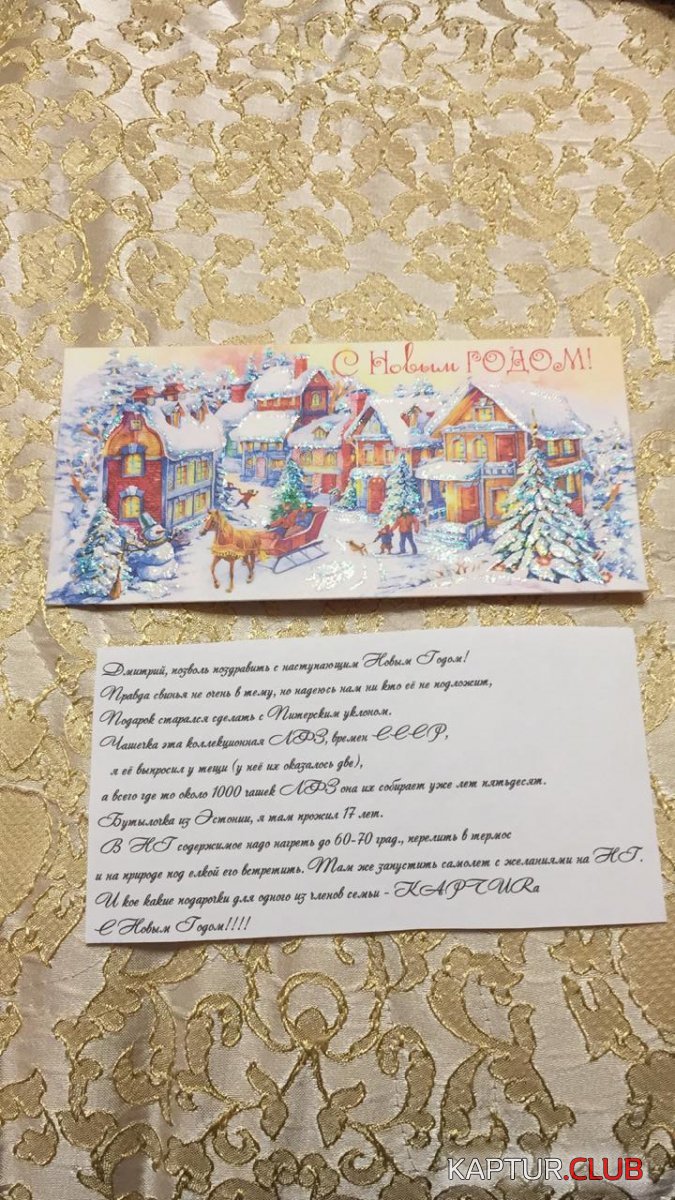 С Новым ГОДОМ!
Дмитрий, позволь поздравить с наступающим Новым Годом!
Правда свинья не очень в тему, но надеюсь нам ни кто её не подложит,
Подарок старался сделать с Питерским уклоном.
Чашечка эта коллекционная ЛФЗ, времен СССР,
я её выпросил у тещи (у неё их оказалось две),
а всего где то около 1000 чашек ЛФЗ она их собирает уже лет пятьдесят.
Бутылочка из Эстонии, я там прожил 17 лет.
В НГ содержимое надо нагреть до 60-70 град., перелить в термос
и на природе под елкой его встретить. Там же запустить самолет с желаниями на НГ.
И кое какие подарочки для одного из членов семьи - KAPTURа
С Новым Годом!!!!
KAPTUR.CLUB